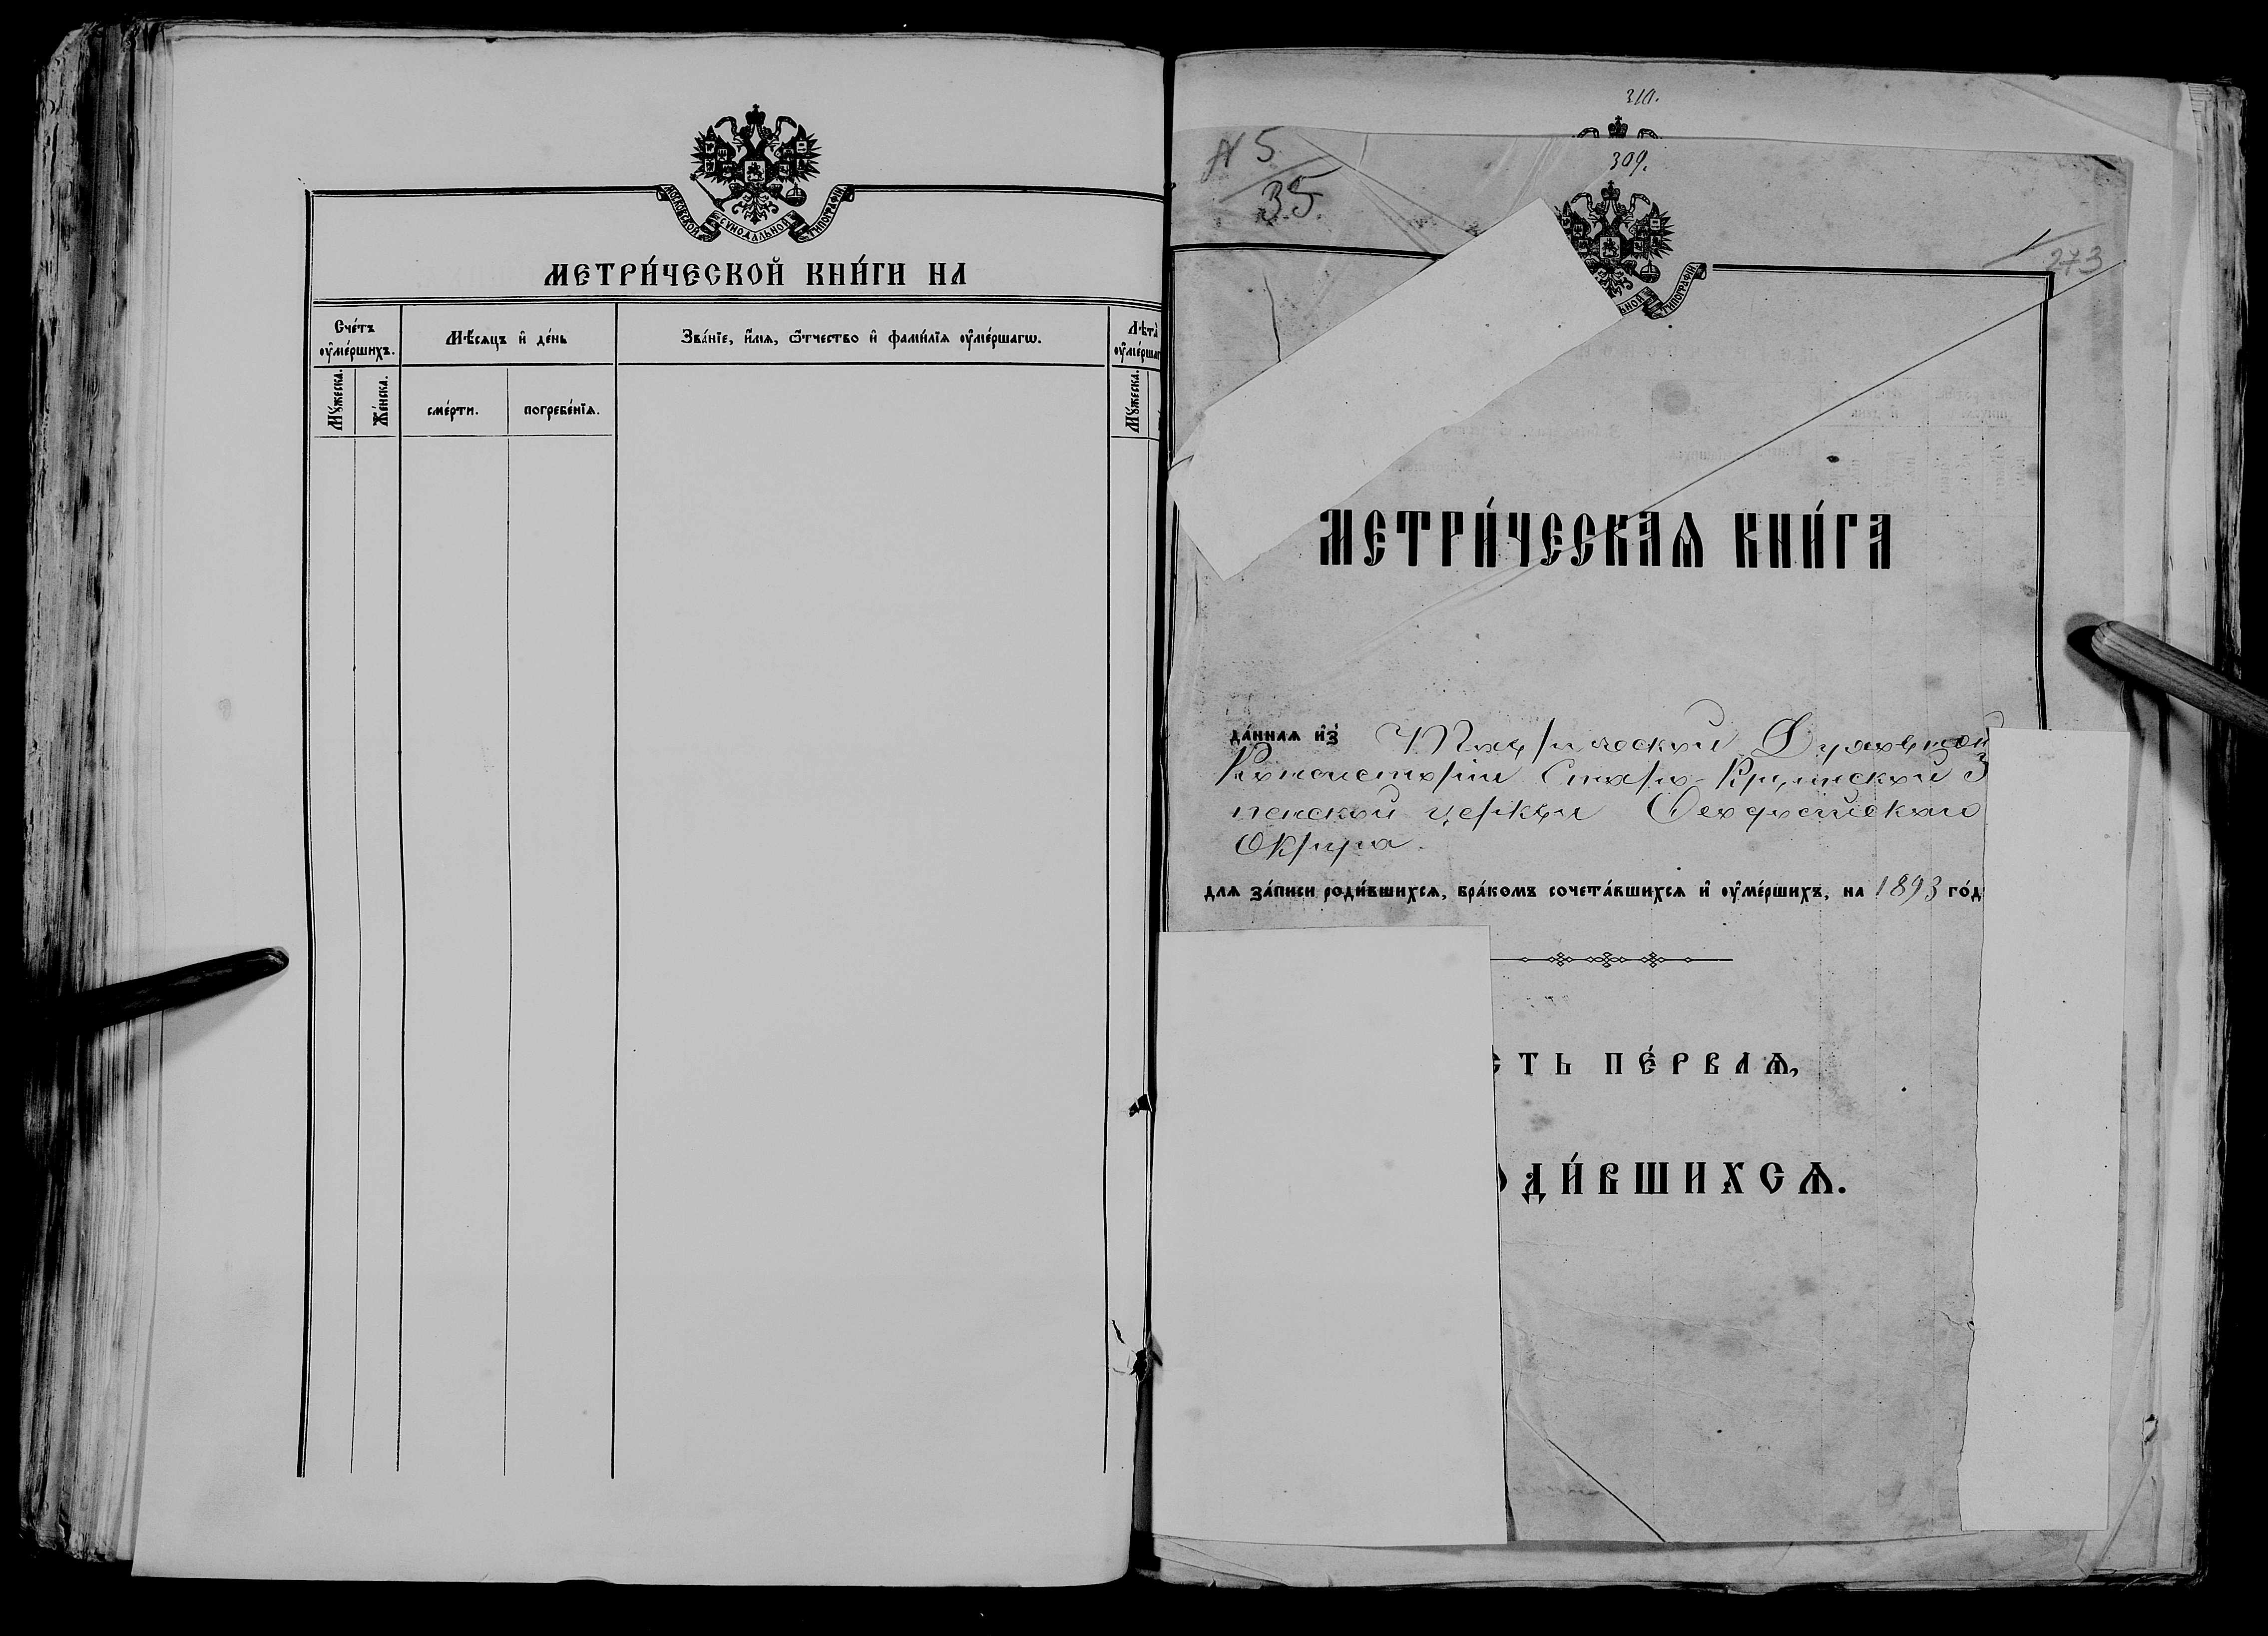 МОСКОВСКОЙ СѴНОДАЛЬНОЙ ТИПОГРАФІИ
МЕТРИ́ЧЕСКОЙ КНИ́ГИ НА
Сче́тъ ᲂу҆ме́ршихъ.
Мѣ́сяцъ и҆ де́нь
Зва́нїе, и҆́мѧ, ѿтчество и҆ фами́лїѧ ᲂу҆ме́ршагѡ.
Лѣта̀
Мꙋ́жеска.
Же́нска.
сме́рти.
погребе́нїѧ.
Мꙋ́жеска.
310.
N 5
35.
309.
273
ЬНОЙ ТИПОГРАФІИ
МЕТРИ́ЧЕСКАѦ КНИ́ГА
да́ннаѧ и҆з̾ Таврической Духовной
Консисторіи Старо-Крымской
церкви Феодосійскаго
Округа.
длѧ за́писи роди́вшихсѧ, бра́комъ сочета́вшихсѧ и҆ ᲂу҆ме́ршихъ, на 1893 го́д
СТЬ ПЕ́РВАѦ,
ОДИ́ВШИХСѦ.